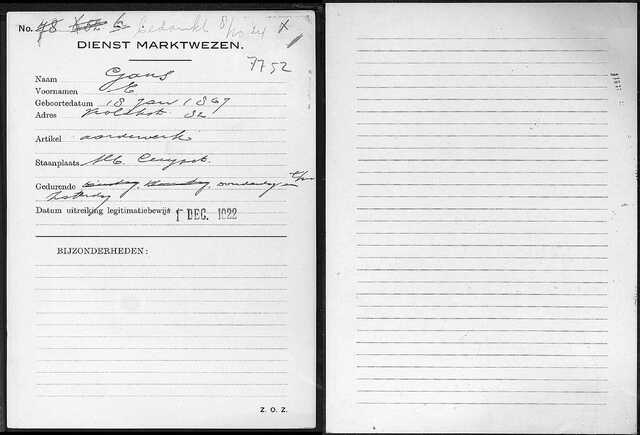 No. 48 6 Bedankt 8/10 24 X
DIENST MARKTWEZEN.
7752
Naam Gans
Voornamen E
Geboortedatum 18 Jan 1867
Adres 82
Artikel aardewerk
Staanplaats Alb. Cuypstr.
Gedurende Dinsdag, donderdag en
Zaterdag
Datum uitreiking legitimatiebewijs 1 DEC. 1922
BIJZONDERHEDEN:
Z. O. Z.